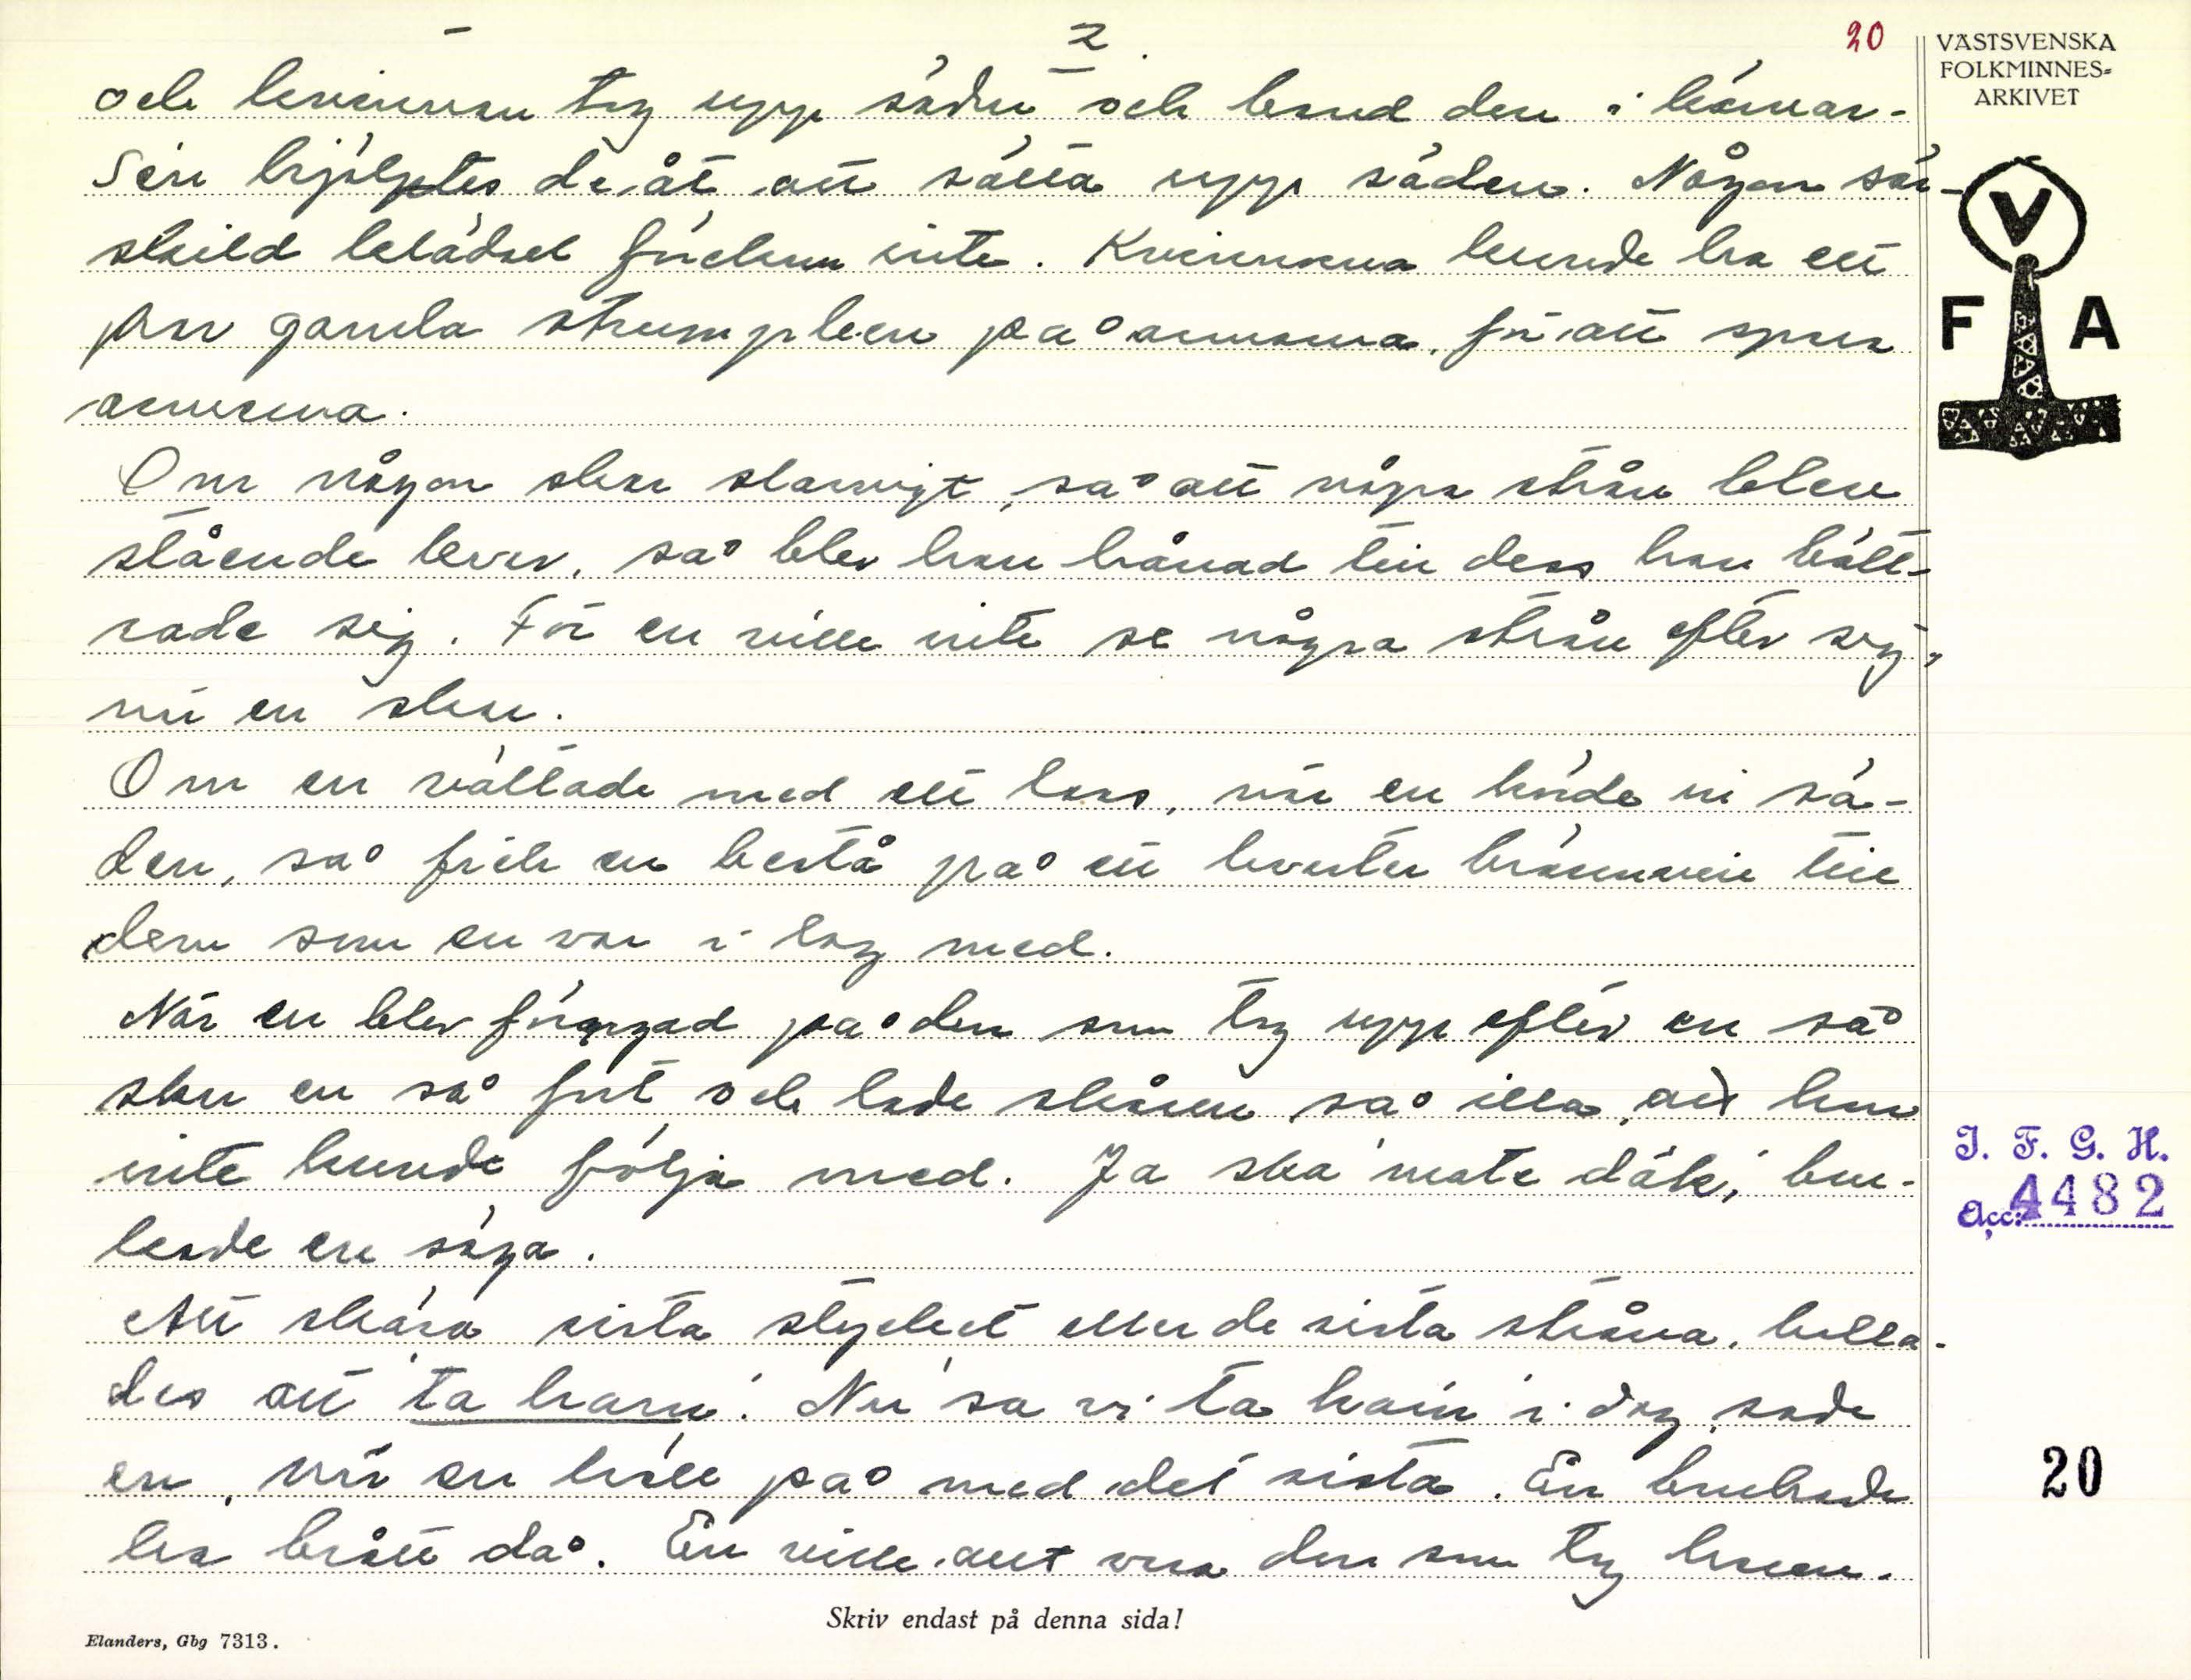 2
20
VÄSTSVENSKA
FOLKMINNES=
ARKIVET
och kvinnan tog upp säden och band den i kärvar.
Sen hjälptes de åt att sätta upp säden. Någon sär-
skild klädsel förekom inte. Kvinnorna kunde ha ett
par gamla strumpben på armarna, för att spara
armarna.
Om någon skar slarvigt, så att några strån blev
stående kvar, så blev han hånad till dess han bätt-
rade sig. För en ville inte se några strån efter sig,
när en skar.
Om en vältade med ett lass, när en körde in sä-
den, så fick en bestå på ett kvarter brännvin till
dem som en var i lag med.
När en blev förargad på den som tog upp efter en så
skar en så fort och lade skåren så illa, att han
inte kunde följa med. Ja ska mate däk, bru-
kade en säga.
Att skära sista stycket eller de sista stråna, kalla-
des att ta haren. Nu sa vi ta harin i dag, sade
en, när en höll på med det sista. En brukade
ha brått då. En ville allt vara den som tog haren.
V
F A
J. F. G. H.
Acc: 4482
20
Skriv endast på denna sida!
Elanders, Gbg 7313.